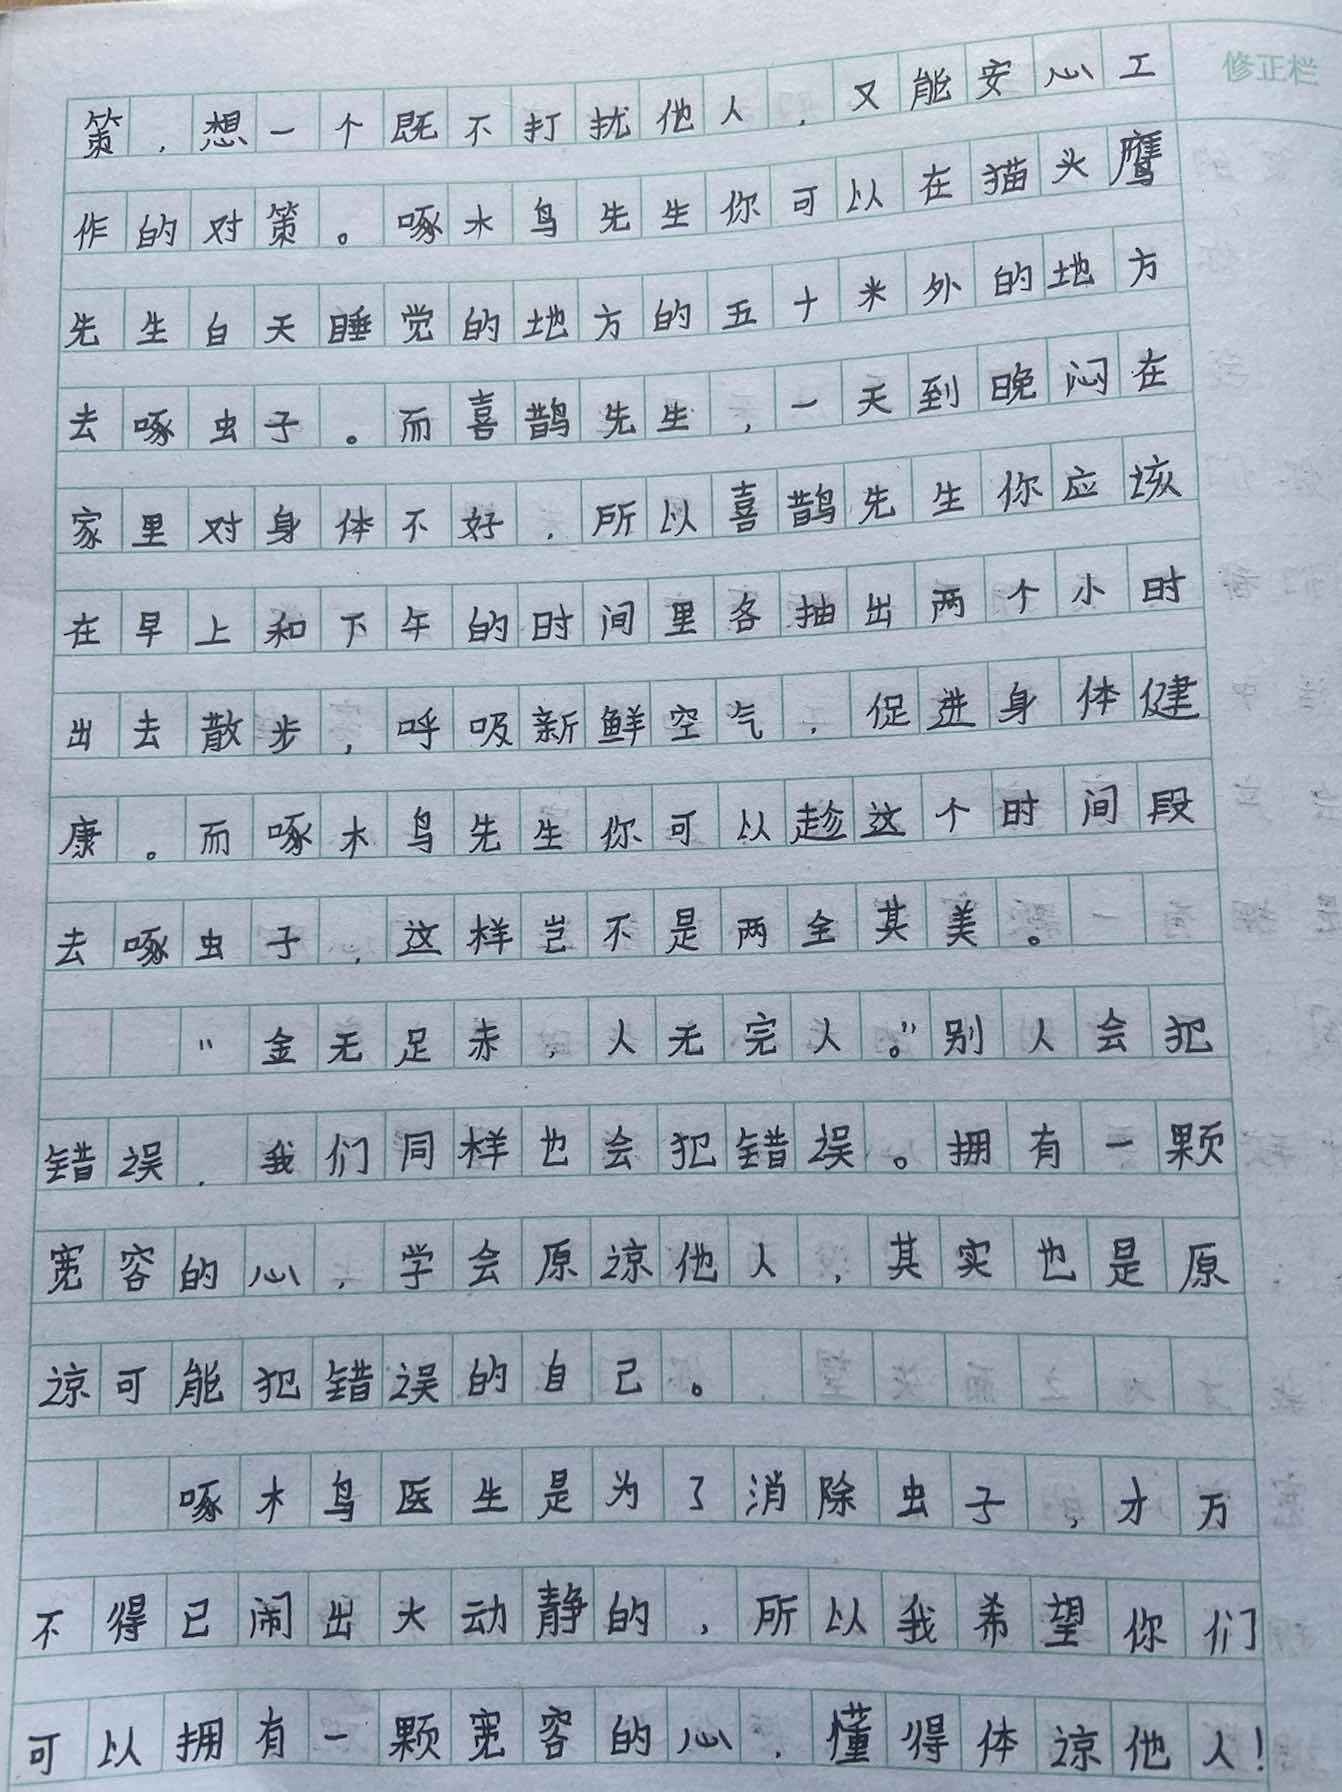 修正栏
策，想一个既不打扰他人，又能安心工
作的对策。啄木鸟先生你可以在猫头鹰
先生白天睡觉的地方的五十米外的地方
去啄虫子。而喜鹊先生，一天到晚闷在
家里对身体不好，所以喜鹊先生你应该
在早上和下午的时间里各抽出两个小时
出去散步，呼吸新鲜空气，促进身体健
康。而啄木鸟先生你可以趁这个时间段
去啄虫子，这样岂不是两全其美。
“金无足赤，人无完人。”别人会犯
错误，我们同样也会犯错误。拥有一颗
宽容的心，学会原谅他人，其实也是原
谅可能犯错误的自己。
啄木鸟医生是为了消除虫子，才万
不得已闹出大动静的，所以我希望你们
可以拥有一颗宽容的心，懂得体谅他人！